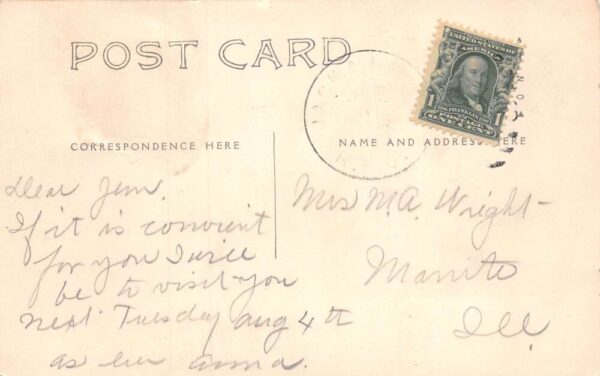 POST CARD
CORRESPONDENCE HERE
NAME AND ADDRESS HERE
UNITED STATES OF AMERICA
FRANKLIN
1 1
POSTAGE
ONE CENT
Dear Jem,
If it is convient
for you I will
be to visit you
next Tuesday Aug 4th
as ever Anna.
Mrs M.A. Wright
Manito
Ill.